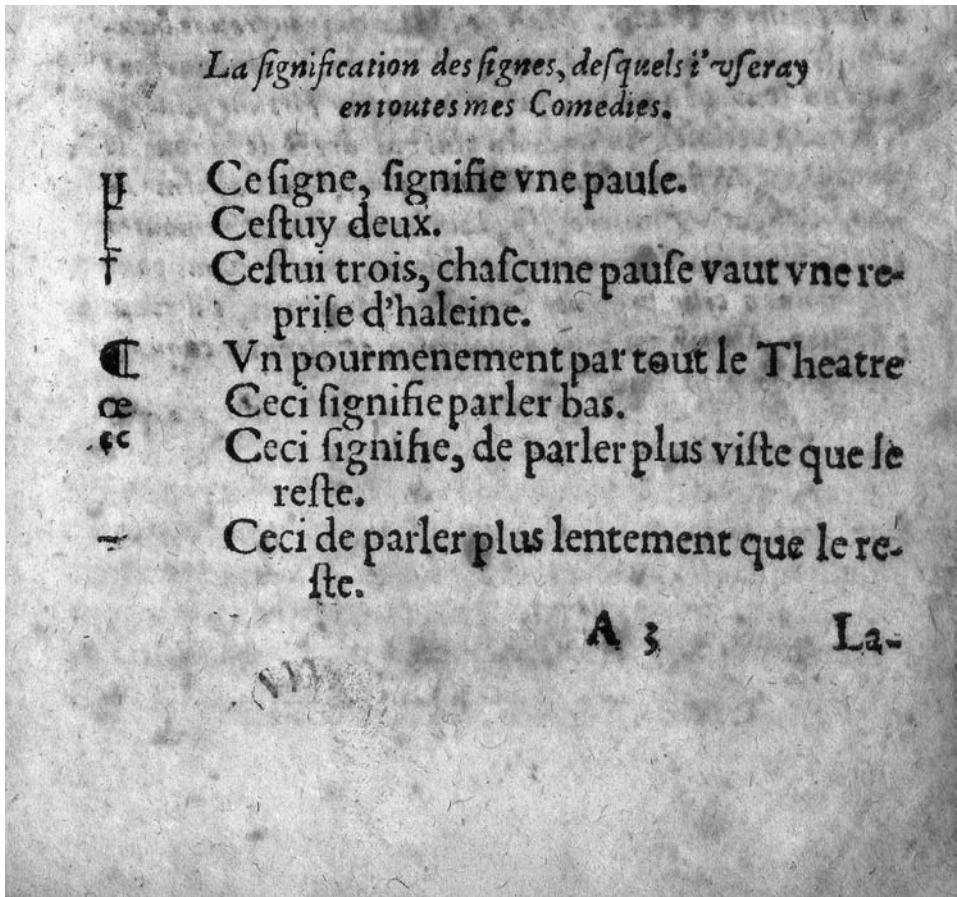 La ſignification des ſignes, deſquels i'vſeray
en toutes mes Comedies.
Ce ſigne, ſignifie vne pauſe.
Ceſtuy deux.
† Ceſtui trois, chaſcune pauſe vaut vne re-
priſe d'haleine.
¶ Vn pourmenement par tout le Theatre
œ Ceci ſignifie parler bas.
Ceci ſignifie, de parler plus viſte que le
reſte.
~ Ceci de parler plus lentement que le re-
ſte.
A 3 La-